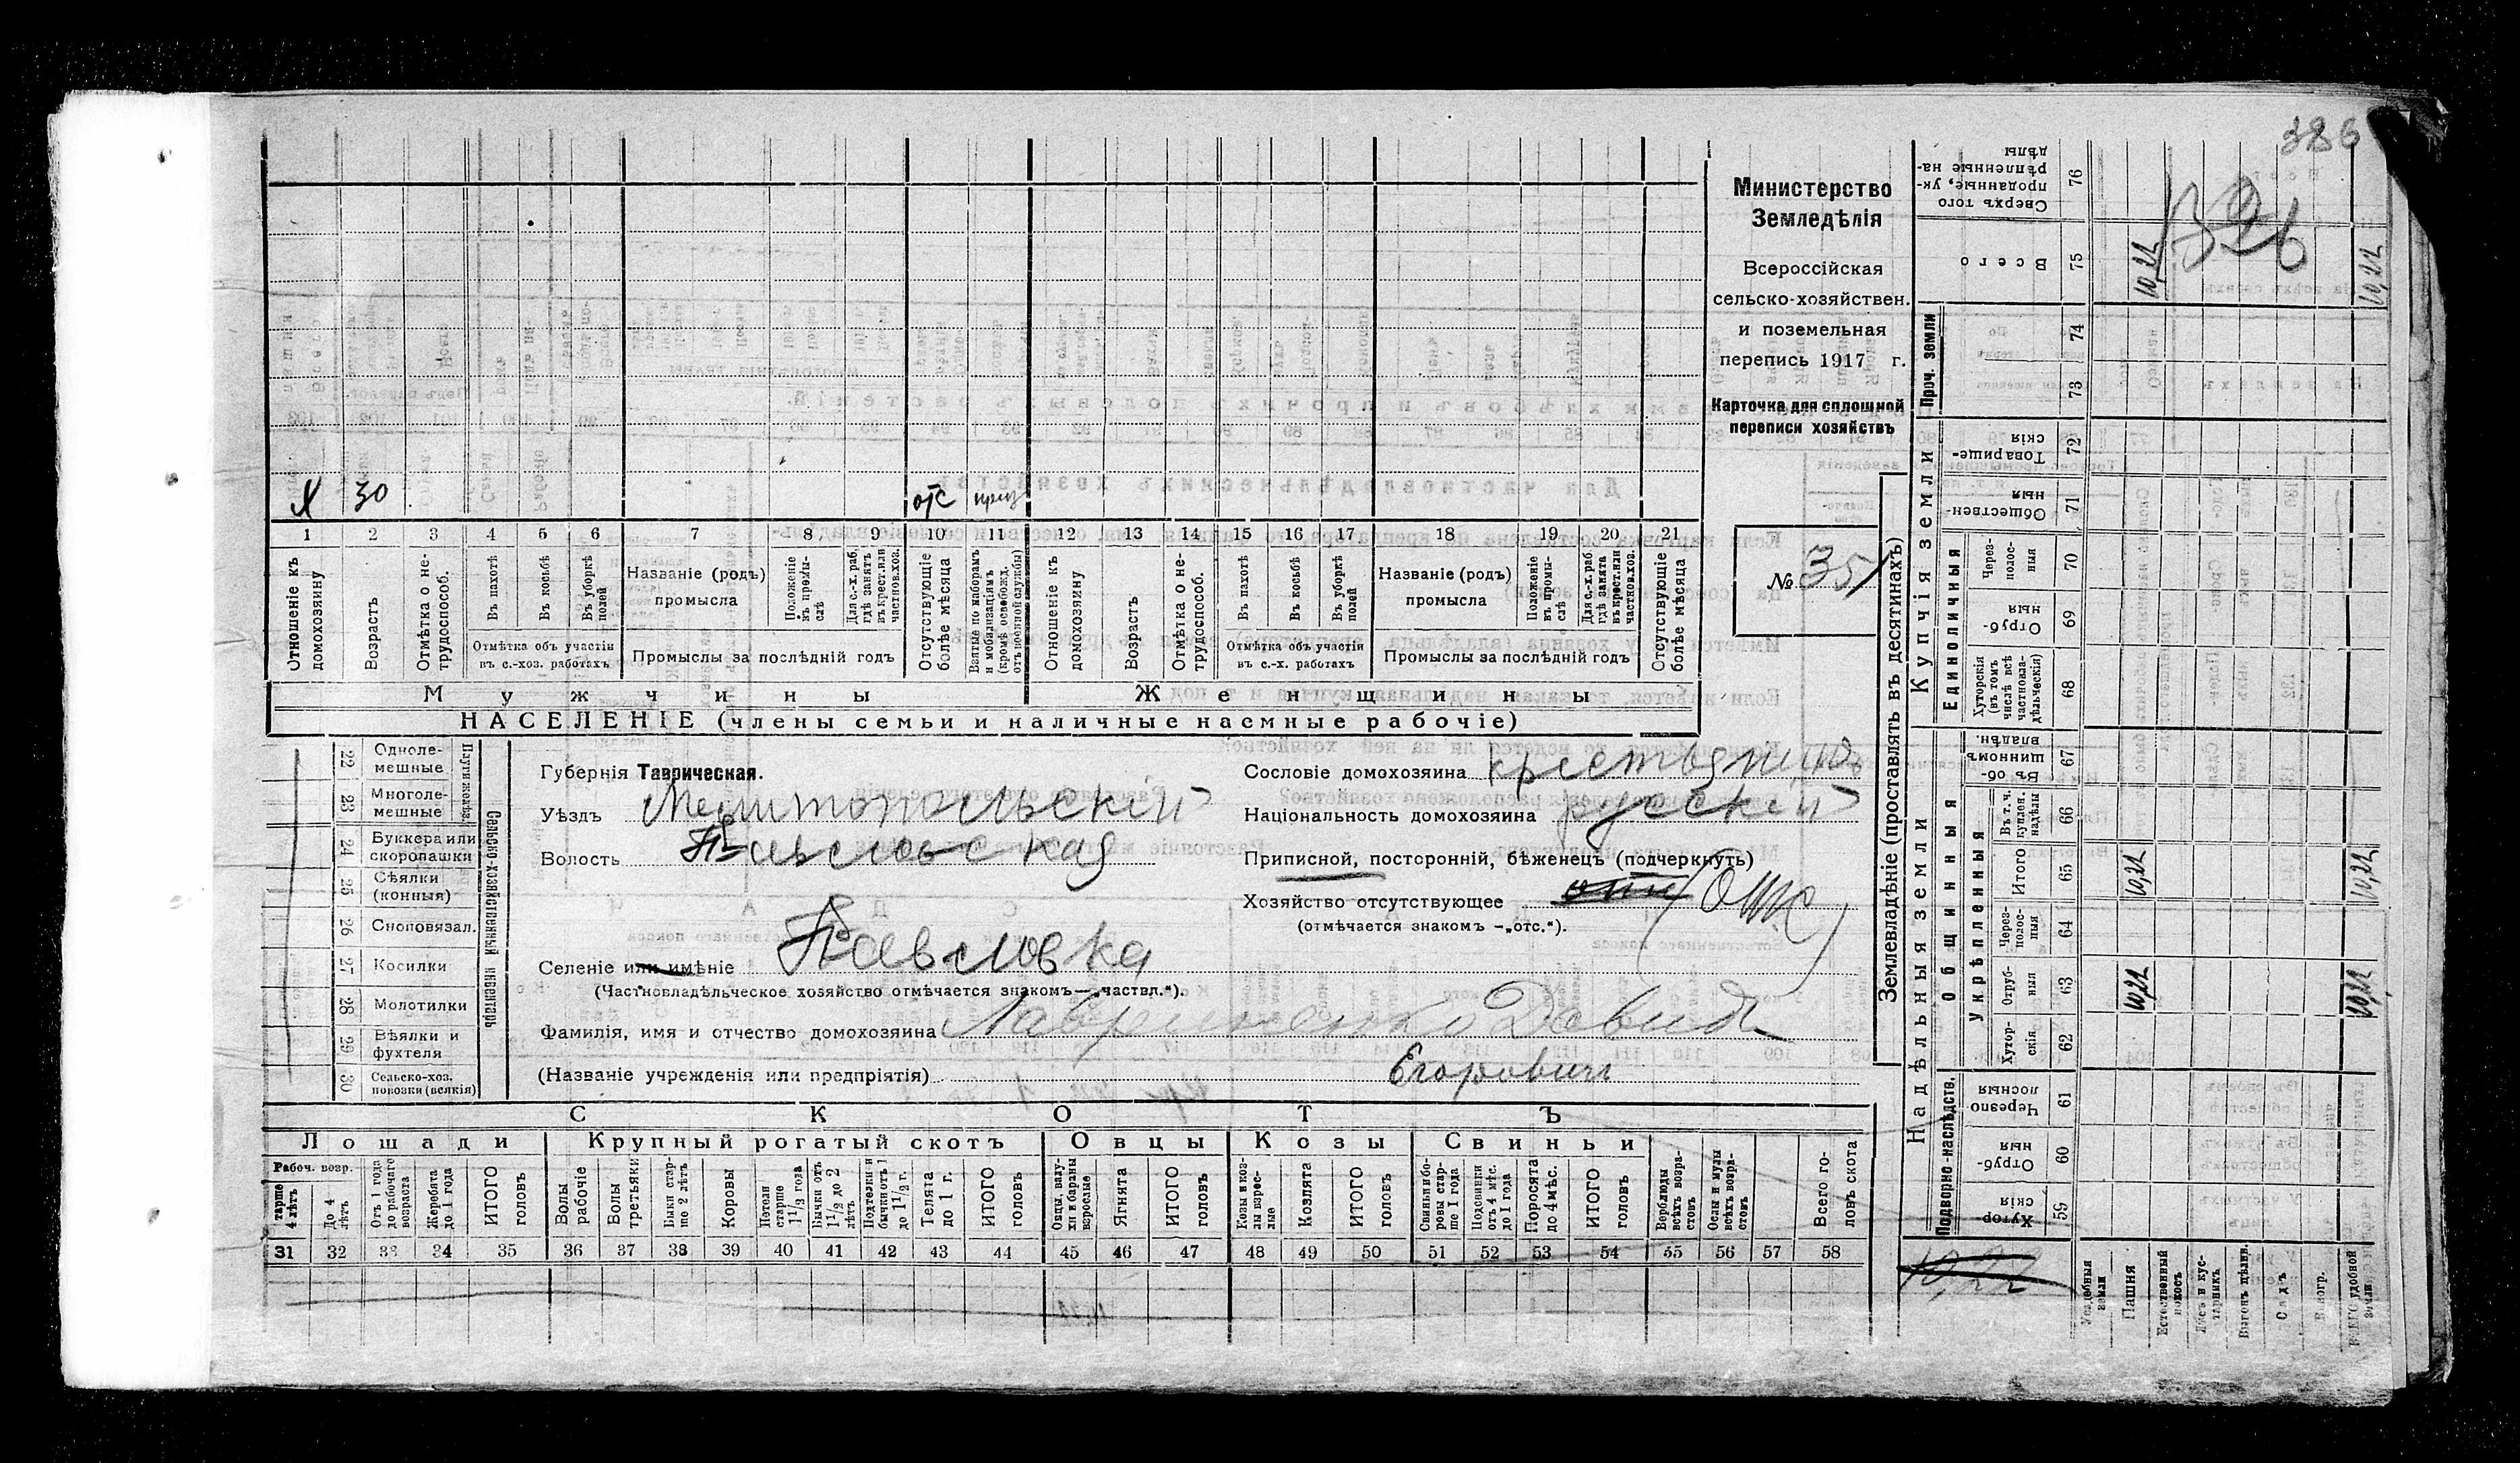 386
326
Министерство
Земледѣлія
Всероссійская
сельско-хозяйствен.
и поземельная
перепись 1917 г.
Карточка для сплошной
переписи хозяйствъ
№ 35
Х 30 отс приз
1 2 3 4 5 6 7 8 9 10 11 12 13 14 15 16 17 18 19 20 21
Отношеніе къ домохозяину
Возрастъ
Отмѣтка о не-трудоспособ.
Въ пахотѣ
Въ косьбѣ
Въ уборкѣ полей
Отмѣтка объ участіи въ с.-хоз. работахъ
Названіе (родъ) промысла
Положеніе въ промы-слѣ
Для с.-х. раб. гдѣ занятъ въ крест. или частнов. хоз.
Промыслы за послѣдній годъ
Отсутствующіе болѣе мѣсяца
Взятые по наборамъ и мобилизаціямъ (кромѣ освобожд. отъ военной службы)
Отношеніе къ домохозяину
Возрастъ
Отмѣтка о не-трудоспособ.
Въ пахотѣ
Въ косьбѣ
Въ уборкѣ полей
Отмѣтка объ участіи въ с.-х. работахъ
Названіе (родъ) промысла
Положеніе въ промы-слѣ
Для с.-х. раб. гдѣ занята въ крест. или частнов. хоз.
Промыслы за послѣдній годъ
Отсутствующіе болѣе мѣсяца
Мужчины Женщины
НАСЕЛЕНІЕ (члены семьи и наличные наемные рабочіе)
Сельско-хозяйственный инвентарь
Плуги желѣз.
22 Одноле-мешные
23 Многоле-мешные
24 Буккера или скоропашки
25 Сѣялки (конныя)
26 Сноповязал.
27 Косилки
28 Молотилки
29 Вѣялки и фухтеля
30 Сельско-хоз. повозки (всякія)
Губернія Таврическая.
Уѣздъ Мелитопольскій
Волость Павловская
Селеніе или имѣніе Павловка
(Частновладѣльческое хозяйство отмѣчается знакомъ—„частвл.“).
Фамилія, имя и отчество домохозяина Лавриненко Давид
(Названіе учрежденія или предпріятія) Егорович
Сословіе домохозяина крестьянинъ
Національность домохозяина русскій
Приписной, посторонній, бѣженецъ (подчеркнуть)
Хозяйство отсутствующее отс (отс)
(отмѣчается знакомъ —„отс.“).
СКОТЪ
Лошади Крупный рогатый скотъ Овцы Козы Свиньи
Рабоч. возр.
тарше 4 лѣтъ
До 4 лѣтъ
Отъ 1 года до рабочаго возраста
Жеребята до 1 года
ИТОГО головъ
Волы рабочіе
Волы третьяки
Быки стар-ше 2 лѣтъ
Коровы
Нетели старше 1½ года
Бычки отъ 1½ до 2 лѣтъ
Подтелки и бычки отъ 1 до 1½ г.
Телята до 1 г.
ИТОГО головъ
Овцы, валу-хи и бараны взрослые
Ягнята
ИТОГО головъ
Козы и коз-лы взрос-лые
Козлята
ИТОГО головъ
Свиньи и бо-ровы стар-ше 1 года
Подсвинки отъ 4 мѣс. до 1 года
Поросята до 4 мѣс.
ИТОГО головъ
Верблюды всѣхъ возра-стовъ
Ослы и мулы всѣхъ возра-стовъ
Всего го-ловъ скота
31 32 33 34 35 36 37 38 39 40 41 42 43 44 45 46 47 48 49 50 51 52 53 54 55 56 57 58
Землевладѣніе (проставлять въ десятинахъ)
Надѣльныя земли
Купчія земли
Проч. земли
Подворно-наслѣдств.
Общинныя
Укрѣпленныя
Единоличныя
Хутор-скія 59
Отруб-ныя 60
Черезпо-лосныя 61
Хутор-скія 62
Отруб-ныя 63
Через-полос-ныя 64
Итого 65
Въ т. ч. куплен. надѣлы 66
Въ об-щинномъ владѣн. 67
Хуторскія (въ томъ числѣ всѣ частновла-дѣльческія) 68
Отруб-ныя 69
Через-полос-ныя 70
Обществен-ныя 71
Товарище-скія 72
73
74
Всего 75
Сверхъ того проданные, ук-рѣпленные на-дѣлы 76
10,22
Усадебныя земли
Пашня
Естественный покосъ
Лѣсъ и кус-тарникъ
Выгонъ цѣлин.
Садъ
Виногр.
удобной земли
10,22 10,22 10,22
10,22 10,22 10,22